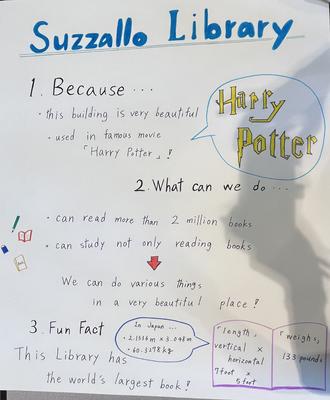 Suzzallo Library
1. Because ...
・this building is very beautiful
・used in famous movie
「Harry Potter」!
Harry
Potter
2. What can we do ...
・can read more than 2 million books
・can study not only reading books
We can do various things
in a very beautiful place!
3. Fun Fact
This Library has
the world's largest book!
In Japan ...
・2.1336m × 3.048m
・60.3278kg
「length」
vertical ×
horizontal
7foot ×
5foot
「weighs」
133 pounds